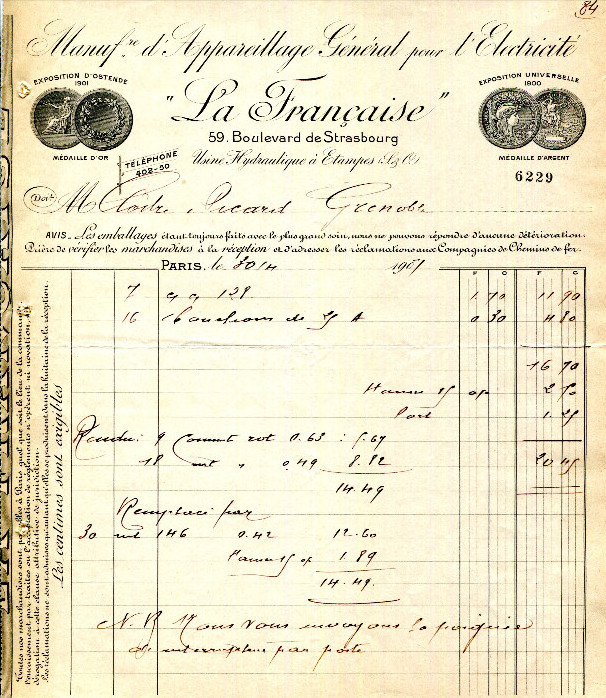 84
Manufre d'Appareillage Général pour l'Electricité
EXPOSITION D'OSTENDE
1901
MÉDAILLE D'OR
EXPOSITION UNIVERSELLE
1900
MÉDAILLE D'ARGENT
"La Française"
59, Boulevard de Strasbourg
Usine Hydraulique à Etampes (S & O)
TÉLÉPHONE
402-50
6229
Doit
M Picard Grenoble
AVIS. Les emballages étant toujours faits avec le plus grand soin, nous ne pouvons répondre d'aucune détérioration.
Prière de vérifier les marchandises à la réception et d'adresser les réclamations aux Compagnies de Chemins de fer.
PARIS, le 30/4 190
F C F C
7 129. 1.70 11 90
16 de A 0 30 4 80
16 70
2 50
Port 1.25
20 45
Rendu: 9 Commut rot 0.63 : 5.67
18 " 0.49 8.82
14.49
Remplacé par
30 146 0.42 12.60
1.89
14.49.
N.B Nous vous envoyons la poignée
d'interrupteur par poste
Toutes nos marchandises sont payables à Paris quel que soit le lieu de la commande.
L'encaissement par traites ou l'acceptation de règlements n'opèrent ni novation, ni
dérogation à cette clause attributive de juridiction.
Les réclamations ne sont admises qu'autant qu'elles se produisent dans la huitaine de la réception.
Les centimes sont exigibles